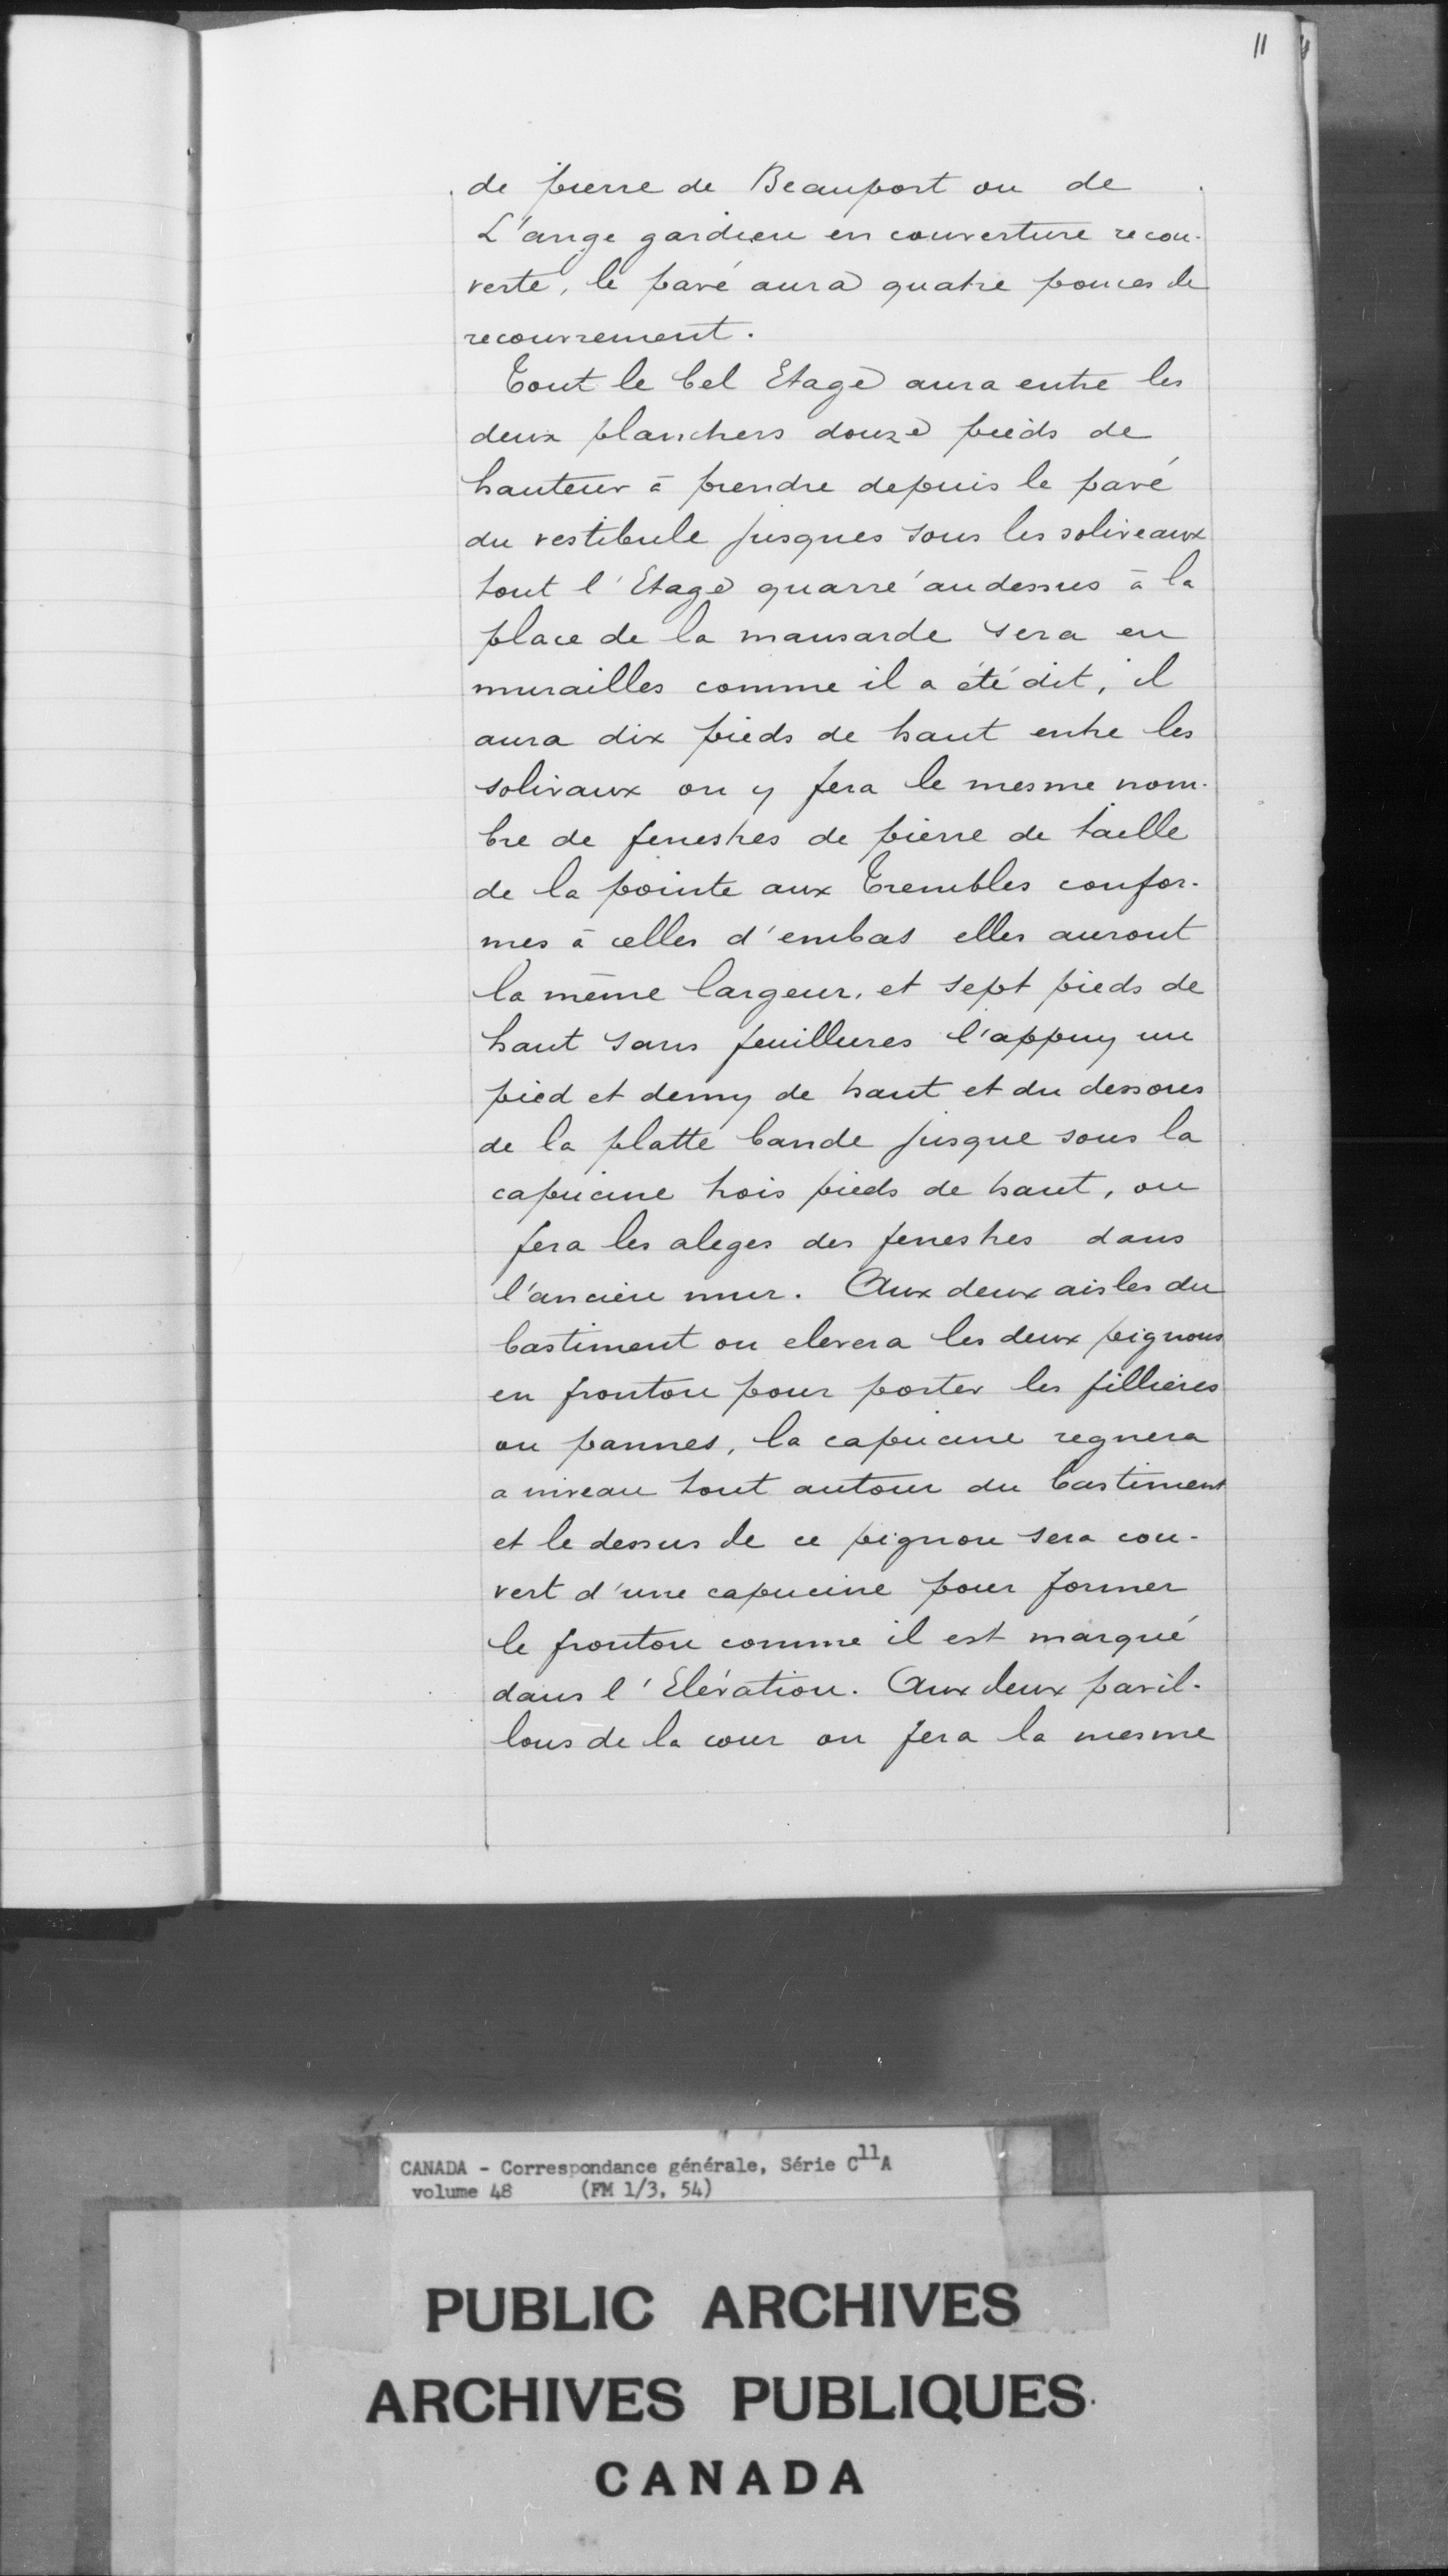 11
de pierre de Beauport ou de
L'ange gardien en couverture recou-
verte, le pavé aura quatre pouces de
recouvrement.
Tout le bel Etage aura entre les
deux planchers douze pieds de
hauteur à prendre depuis le pavé
du vestibule jusques sous les soliveaux
tout l'Etage quarré audessus à la
place de la mansarde sera en
murailles comme il a été dit, il
aura dix pieds de haut entre les
solivaux on y fera le mesme nom-
bre de fenestres de pierre de taille
de la pointe aux Trembles confor-
mes à celles d'embas elles auront
la même largeur, et sept pieds de
haut sans feuillures l'appuy un
pied et demy de haut et du dessous
de la platte bande jusque sous la
capucine trois pieds de haut, on
fera les aleges des fenestres dans
l'ancien mur. Aux deux aisles du
bastiment on elevera les deux pignons
en fronton pour porter les fillières
ou pannes, la capucine regnera
a niveau tout autour du bastiment
et le dessus de ce pignon sera cou-
vert d'une capucine pour former
le fronton comme il est marqué
dans l'Elévation. Aux deux pavil-
lons de la cour on fera la mesme
CANADA - Correspondance générale, Série C11A
volume 48 (FM 1/3, 54)
PUBLIC ARCHIVES
ARCHIVES PUBLIQUES
CANADA